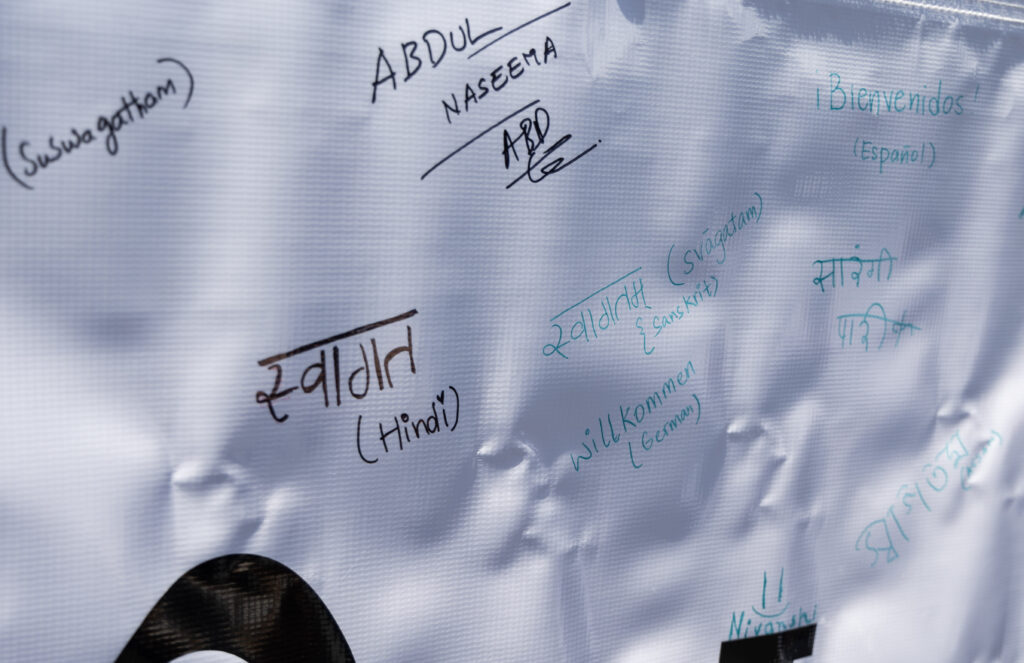 (Suswagatham)
ABDUL
NASEEMA
ABD
¡Bienvenidos!
(Español)
स्वागतम् (svāgatam)
{Sanskrit)
सारंगी
पारीक
स्वागत
(Hindi)
Willkommen
(German)
Nivanshi